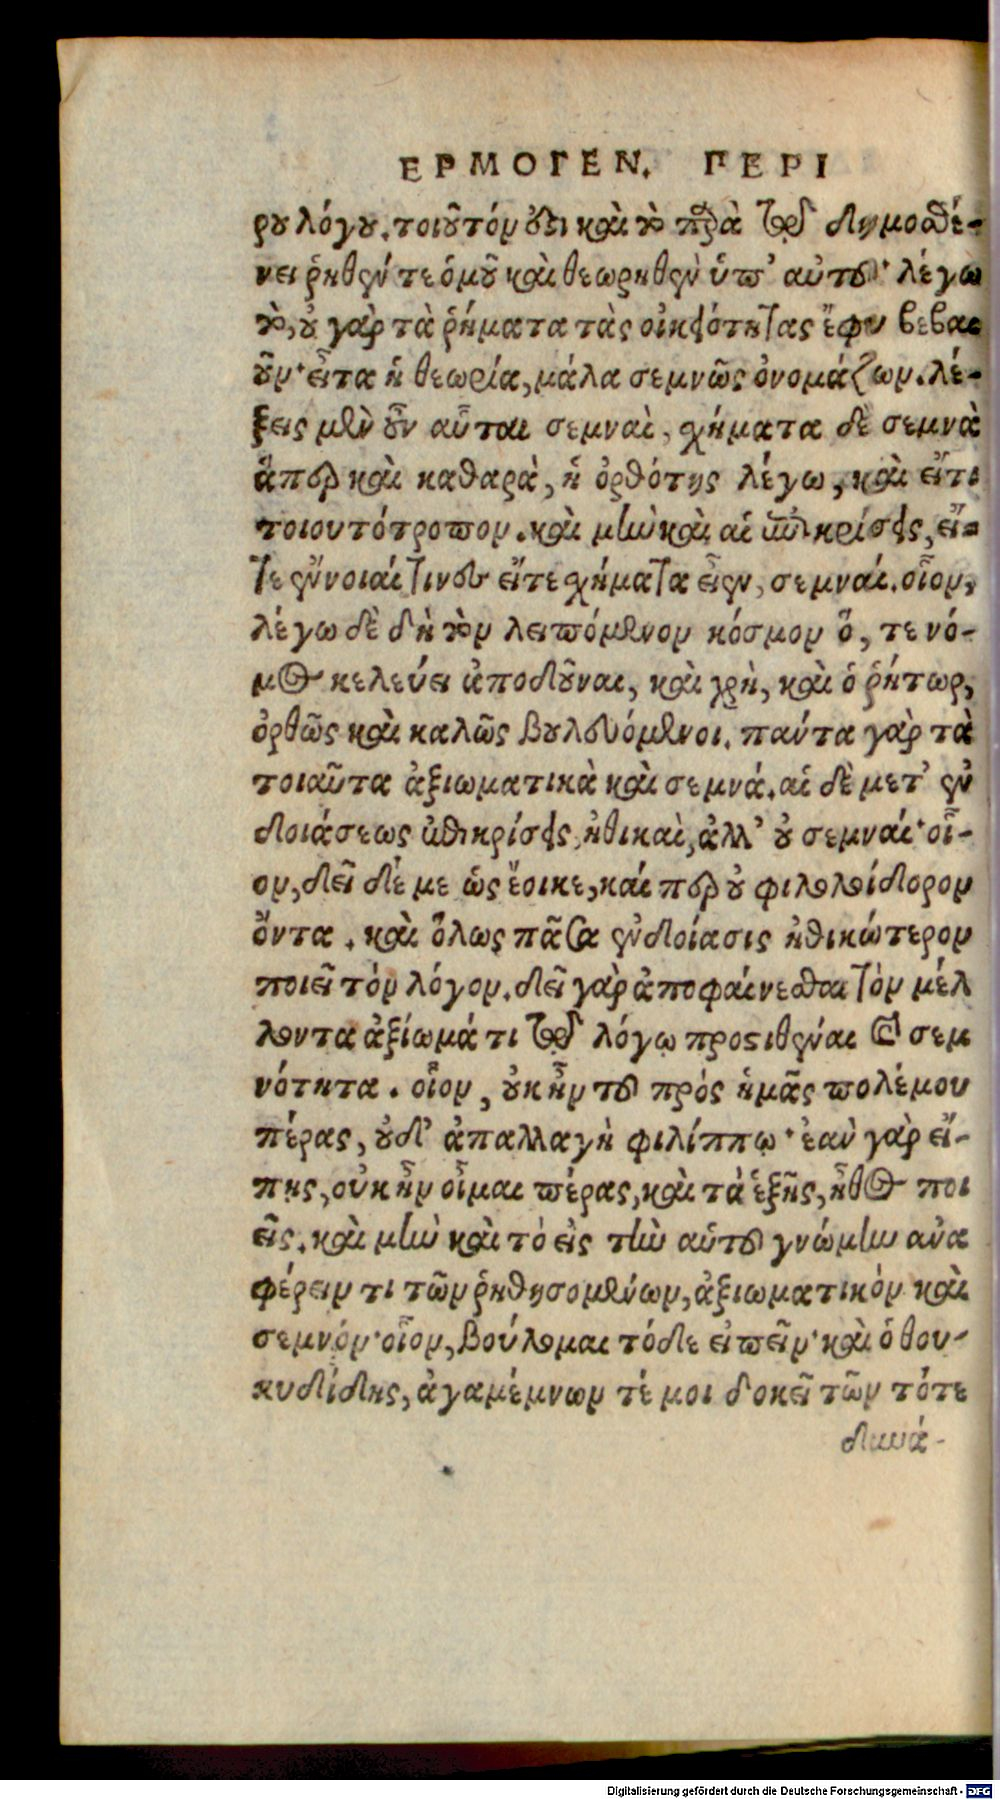 ΕΡΜΟΓΕΝ. ΠΕΡΙ
ρου λόγου. τοιοῦτόν ἐστι καὶ τὸ παρὰ τῷ δημοσθέ-
νει ῥηθέν τε ὁμοῦ καὶ θεωρηθὲν ὑπ' αὐτοῦ· λέγω
τὸ, οὐ γὰρ τὰ ῥήματα τὰς οἰκειότητας ἔφυ βεβαι
οῦν· εἶτα ἡ θεωρία, μάλα σεμνῶς ὀνομάζων. λέ-
ξεις μὲν οὖν αὗται σεμναὶ, σχήματα δὲ σεμνὰ
ἅπερ καὶ καθαρὰ, ἡ ὀρθότης λέγω, καὶ εἴ τι
τοιουτότροπον. καὶ μὴν καὶ αἱ ἐπικρίσεις, εἴ-
τε ἔννοιαί τινες εἴτε σχήματα εἶεν, σεμναί. οἷον,
λέγω δὲ δὴ τὸν λειπόμενον κόσμον ὅ, τε νό-
μος κελεύει ἀποδοῦναι, καὶ χρὴ, καὶ ὁ ῥήτωρ,
ὀρθῶς καὶ καλῶς βουλευόμενοι. πάντα γὰρ τὰ
τοιαῦτα ἀξιωματικὰ καὶ σεμνά. αἱ δὲ μετ' ἐν
δοιάσεως ἐπικρίσεις, ἠθικαὶ, ἀλλ' οὐ σεμναί· οἷ-
ον, δεῖ δέ με ὡς ἔοικε, καί περ οὐ φιλολοίδορον
ὄντα. καὶ ὅλως πᾶσα ἐνδοίασις ἠθικώτερον
ποιεῖ τὸν λόγον. δεῖ γὰρ ἀποφαίνεσθαι τὸν μέλ
λοντα ἀξίωμά τι τῷ λόγῳ προστιθέναι καὶ σεμ
νότητα. οἷον, οὐκ ἦν τοῦ πρὸς ἡμᾶς πολέμου
πέρας, οὐδ' ἀπαλλαγὴ φιλίππῳ· ἐὰν γὰρ εἴ-
πῃς, οὐκ ἦν οἶμαι πέρας, καὶ τὰ ἑξῆς, ἦθος ποι
εῖς. καὶ μὴν καὶ τὸ εἰς τὴν αὑτοῦ γνώμην ἀνα
φέρειν τι τῶν ῥηθησομένων, ἀξιωματικὸν καὶ
σεμνόν· οἷον, βούλομαι τόδε εἰπεῖν· καὶ ὁ θου-
κυδίδης, ἀγαμέμνων τέ μοι δοκεῖ τῶν τότε
δυνά-
Digitalisierung gefördert durch die Deutsche Forschungsgemeinschaft - DFG